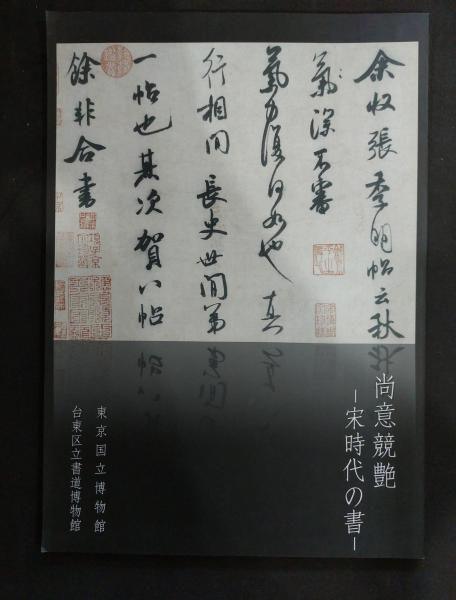 余収張季明帖云秋
氣深不審
氣力復何如也真
行相間長史世間第
一帖也其次賀八帖
餘非合書
尚意競艶
－宋時代の書－
東京国立博物館
台東区立書道博物館